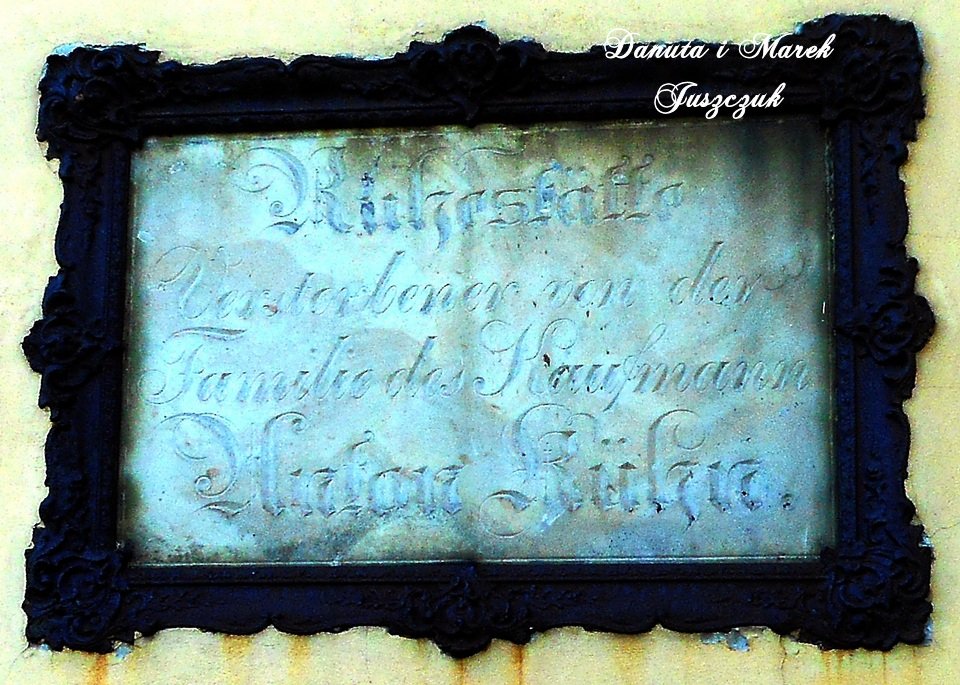 Danuta i Marek
Juszczuk
Ruhestätte
Verstorbener von der
Familie des Kaufmann
Anton Kühn.